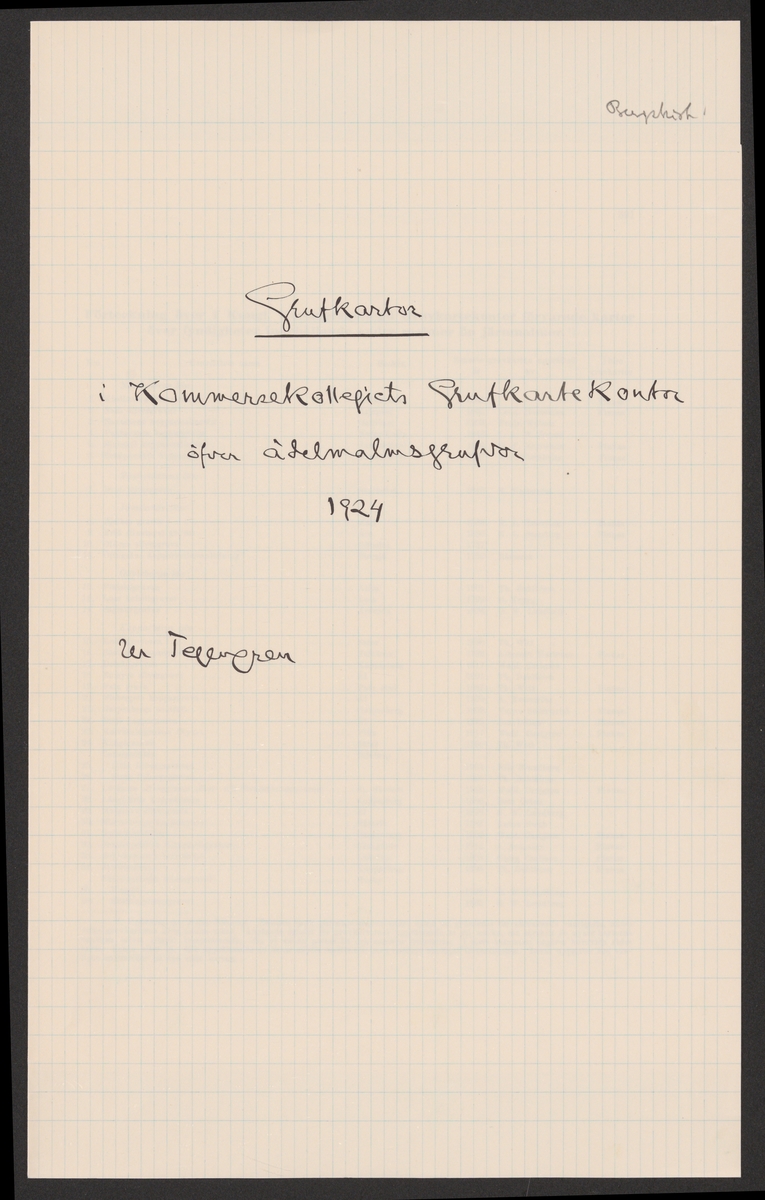 Grufkartor
i Kommersekollegiets Grufkartekontor
öfver ädelmalmsgrufvor
1924
Tegengren